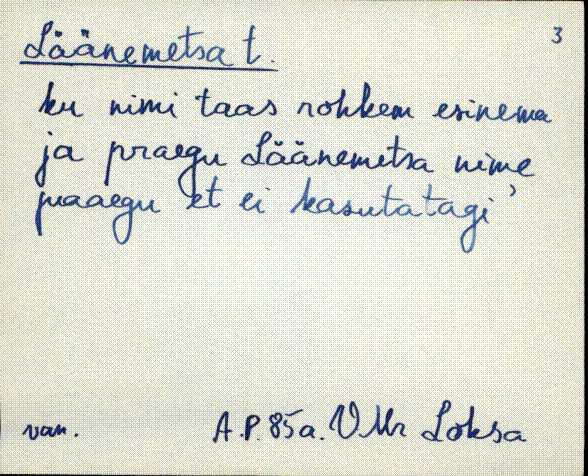 Läänemetsa t. 3
ku nimi taas rohkem esinema
ja praegu Läänemetsa nime
praaegu et ei kasutatagi'
van. A.P. 85a. VMr Loksa